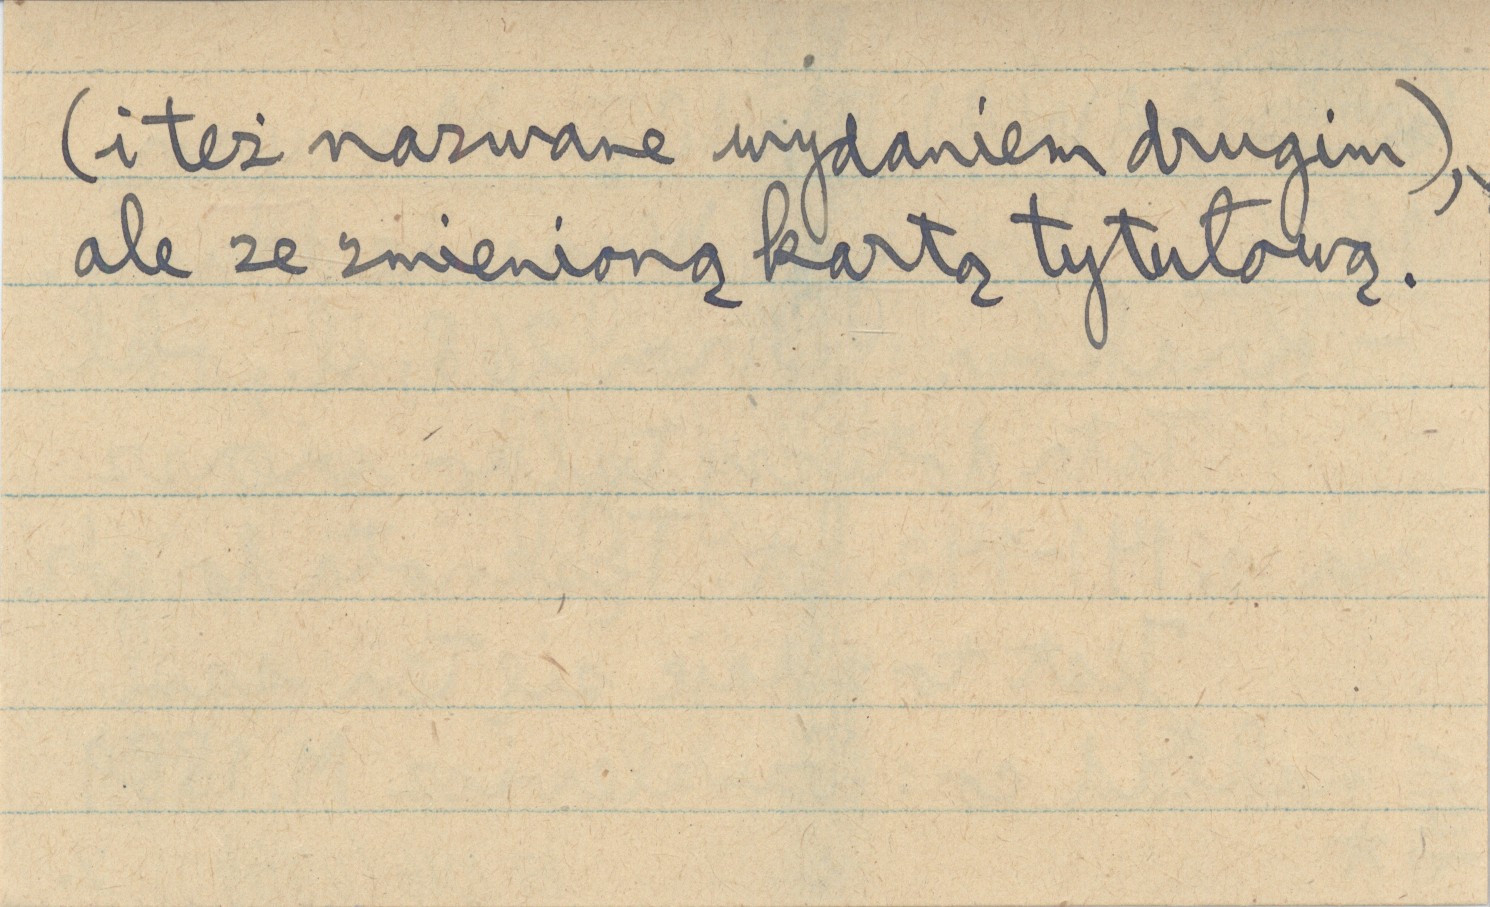 (i też nazwane wydaniem drugim),
ale ze zmienioną kartą tytułową.